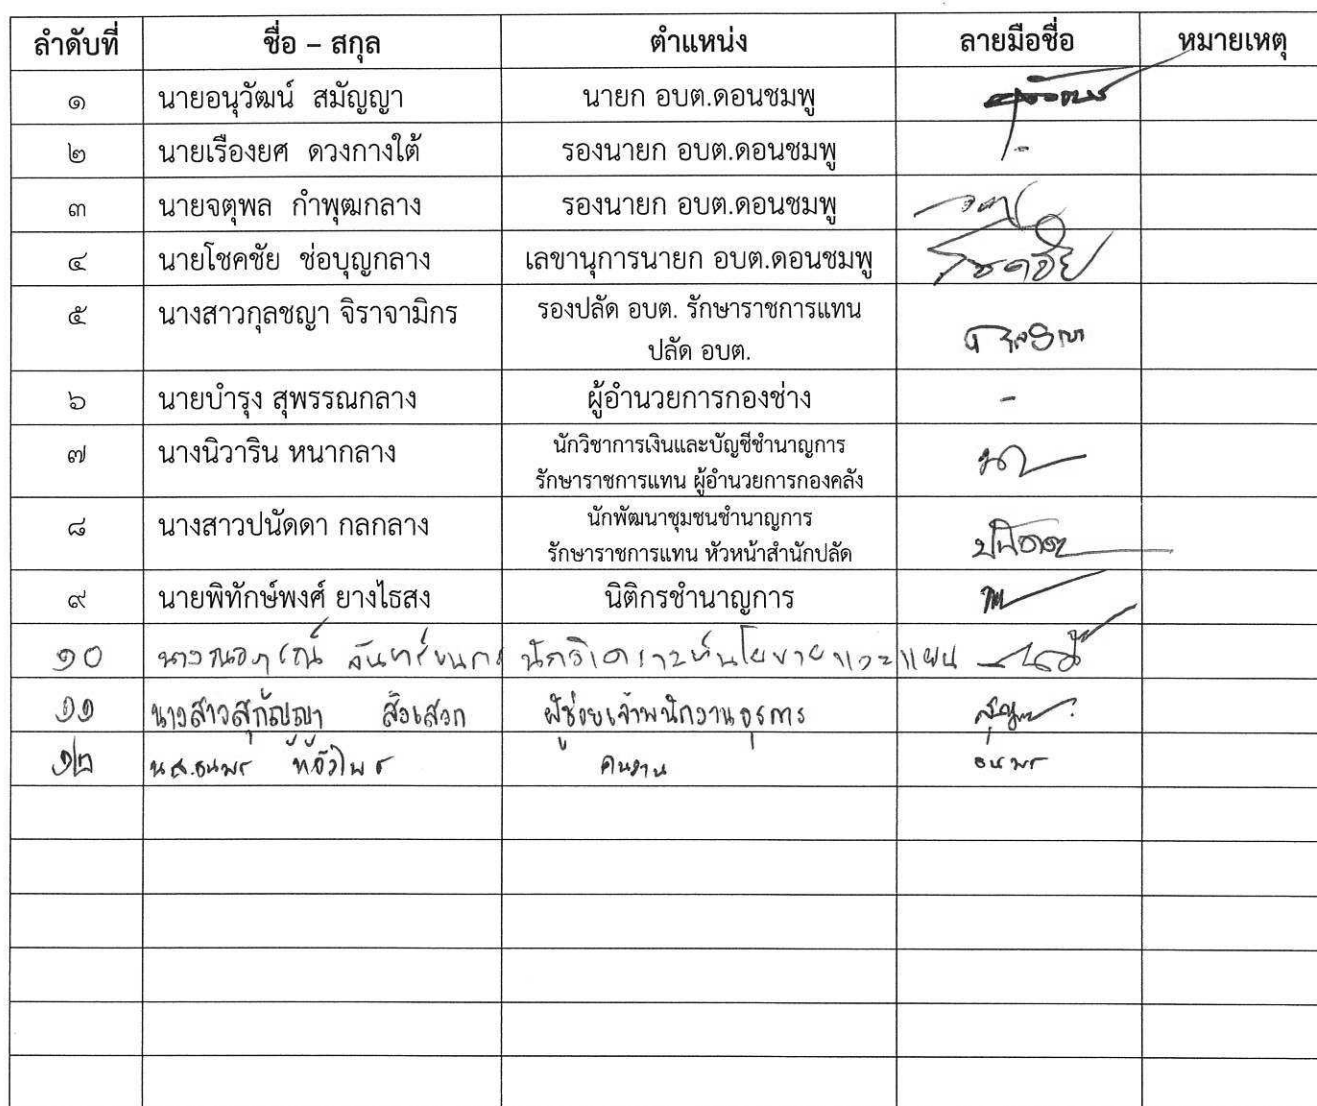 ลำดับที่ ชื่อ – สกุล ตำแหน่ง ลายมือชื่อ หมายเหตุ
๑ นายอนุวัฒน์ สมัญญา นายก อบต.ดอนชมพู
๒ นายเรืองยศ ดวงกางใต้ รองนายก อบต.ดอนชมพู -
๓ นายจตุพล กำพุฒกลาง รองนายก อบต.ดอนชมพู
๔ นายโชคชัย ช่อบุญกลาง เลขานุการนายก อบต.ดอนชมพู โชคชัย
๕ นางสาวกุลชญา จิราจามิกร รองปลัด อบต. รักษาราชการแทน
ปลัด อบต.
๖ นายบำรุง สุพรรณกลาง ผู้อำนวยการกองช่าง -
๗ นางนิวาริน หนากลาง นักวิชาการเงินและบัญชีชำนาญการ
รักษาราชการแทน ผู้อำนวยการกองคลัง
๘ นางสาวปนัดดา กลกลาง นักพัฒนาชุมชนชำนาญการ
รักษาราชการแทน หัวหน้าสำนักปลัด ปนัดดา
๙ นายพิทักษ์พงศ์ ยางไธสง นิติกรชำนาญการ
๑๐ นักวิเคราะห์นโยบายและแผน
๑๑ นางสาวสุกัญญา ผู้ช่วยเจ้าพนักงานธุรการ
๑๒ น.ส.ธนพร คนงาน ธนพร